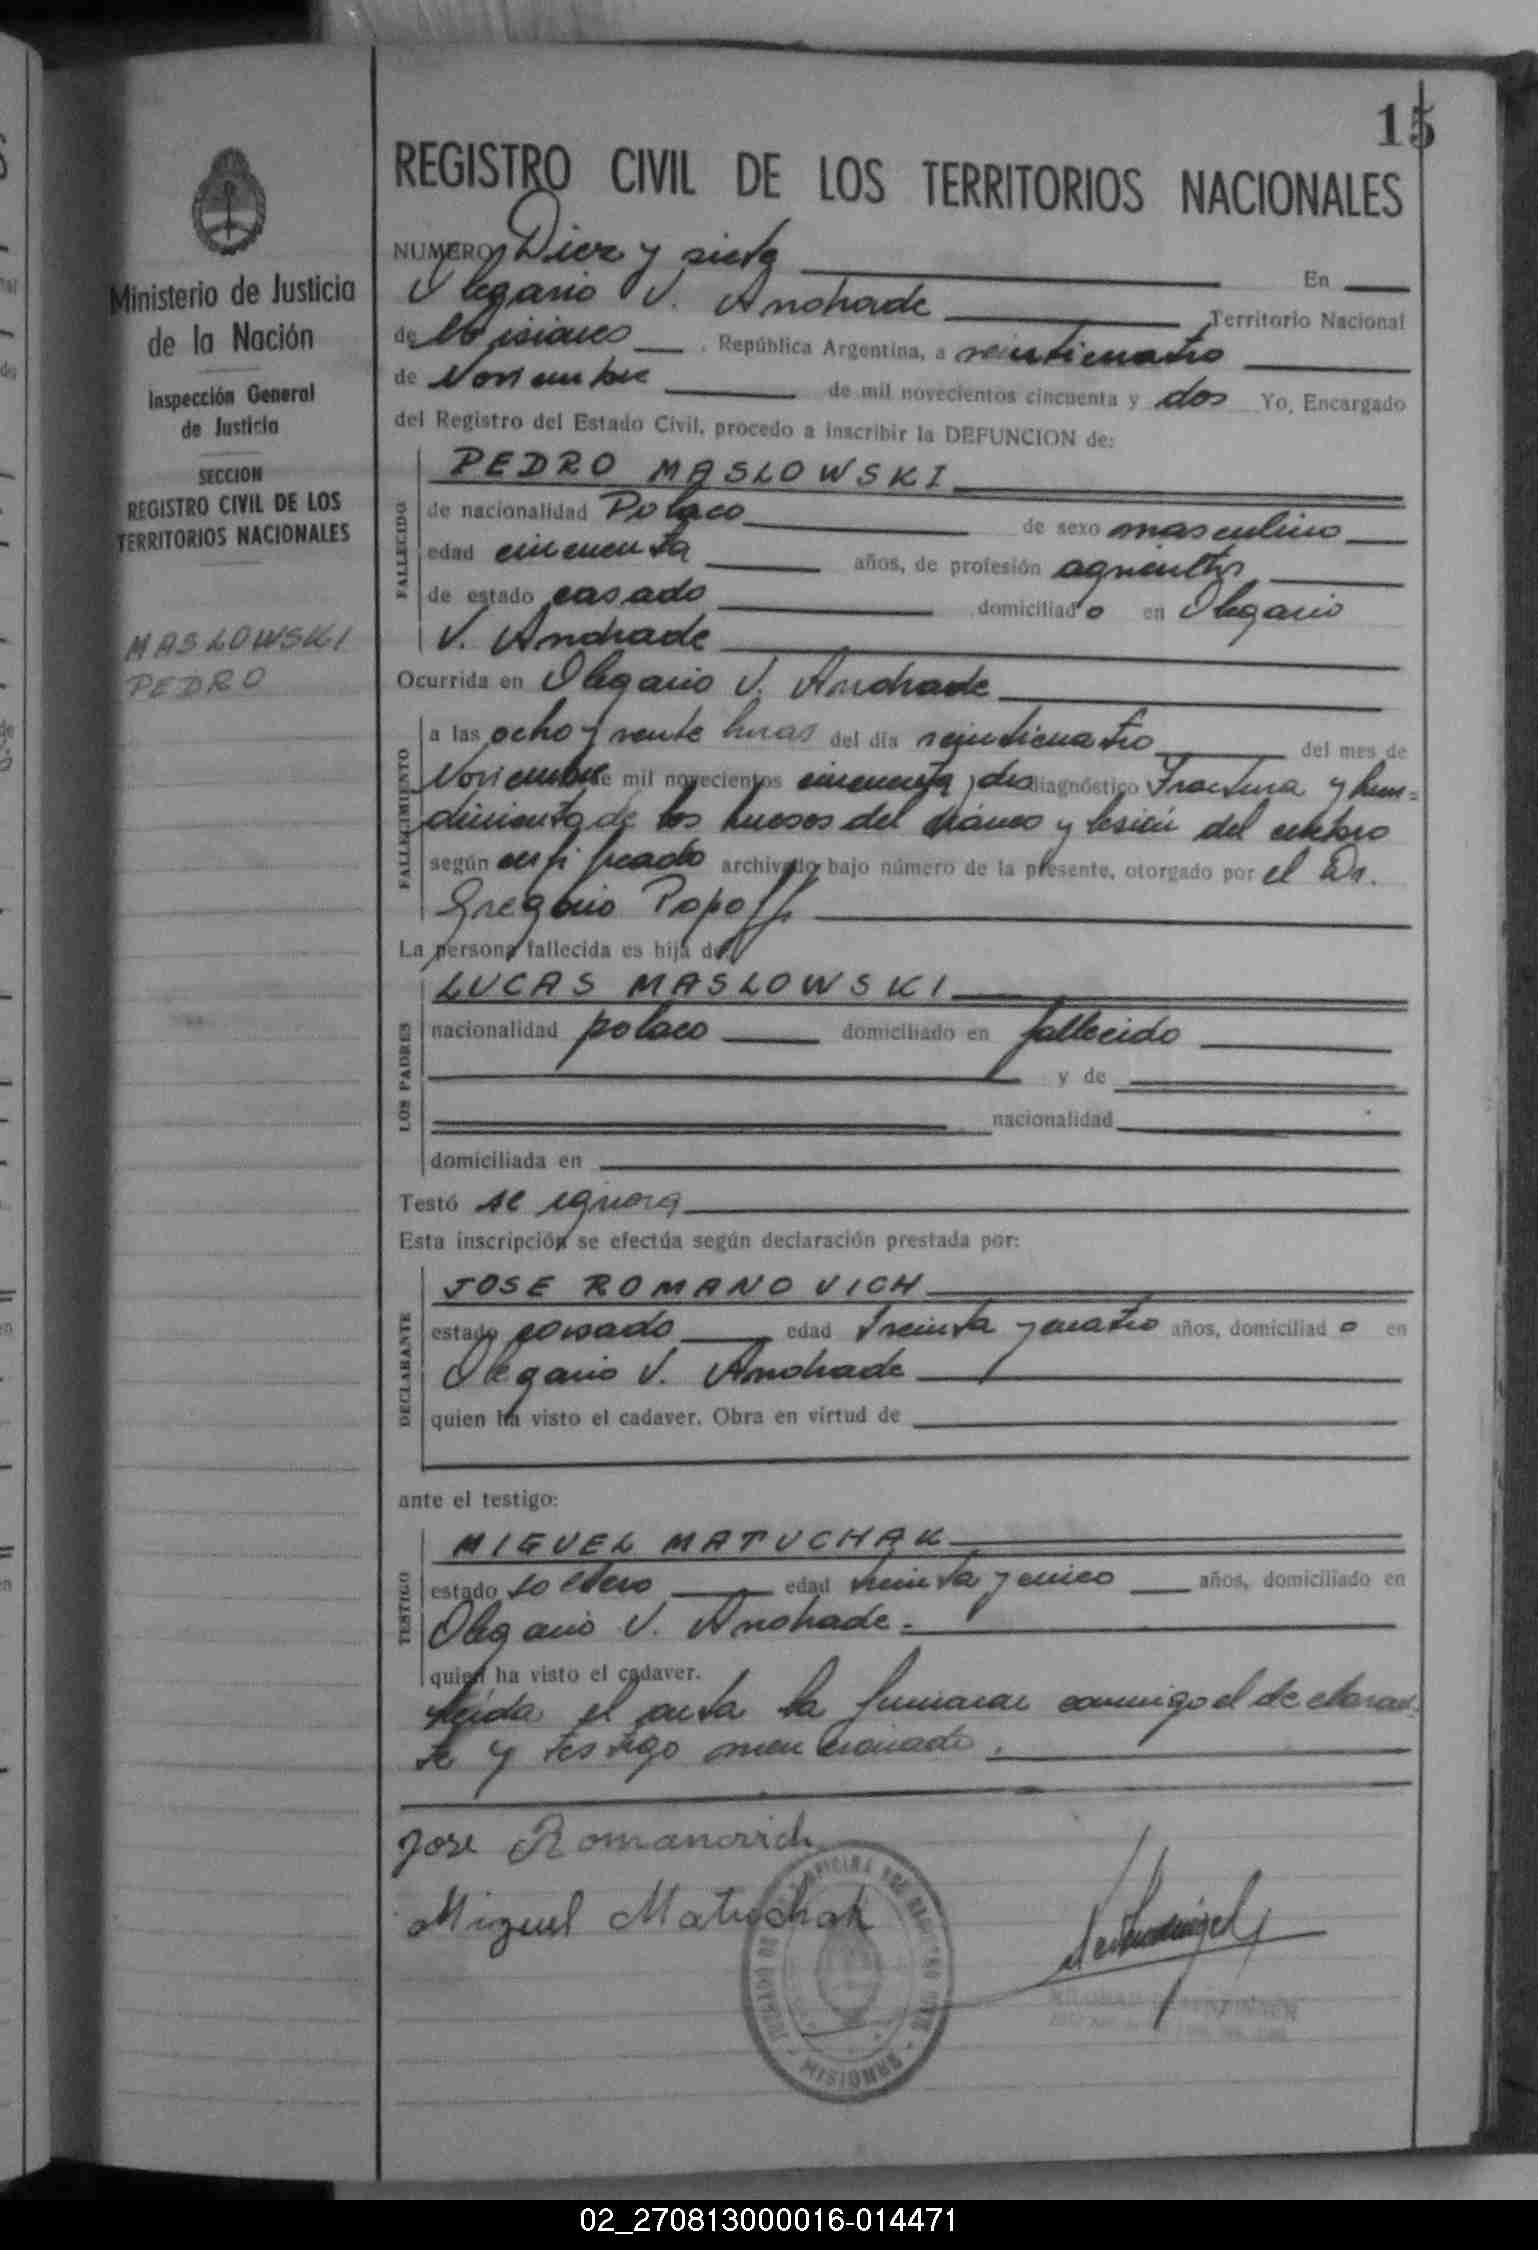 15
REGISTRO CIVIL DE LOS TERRITORIOS NACIONALES
Ministerio de Justicia
de la Nación
Inspección General
de Justicia
SECCION
REGISTRO CIVIL DE LOS
TERRITORIOS NACIONALES
MASLOWSKI
PEDRO
NUMERO Diez y siete En
Olegario V. Andrade Territorio Nacional
de Misiones , República Argentina, a veinticuatro
de Noviembre de mil novecientos cincuenta y dos Yo, Encargado
del Registro del Estado Civil, procedo a inscribir la DEFUNCION de:
PEDRO MASLOWSKI
FALLECIDO
de nacionalidad Polaco de sexo masculino
edad cincuenta años, de profesión agricultor
de estado casado domiciliado en Olegario
V. Andrade
Ocurrida en Olegario V. Andrade
FALLECIMIENTO
a las ocho y veinte horas del día veinticuatro del mes de
Noviembre de mil novecientos cincuenta y dos diagnóstico Fractura y hun=
dimiento de los huesos del cráneo y lesión del cerebro
según certificado archivado bajo número de la presente, otorgado por el Dr.
Gregorio Popoff
La persona fallecida es hija de
LUCAS MASLOWSKI
LOS PADRES
nacionalidad polaco domiciliado en fallecido
y de
nacionalidad
domiciliada en
Testó se ignora
Esta inscripción se efectúa según declaración prestada por:
JOSE ROMANOVICH
DECLARANTE
estado casado edad treinta y cuatro años, domiciliado en
Olegario V. Andrade
quien ha visto el cadaver. Obra en virtud de
ante el testigo:
MIGUEL MATUCHAK
TESTIGO
estado soltero edad treinta y cinco años, domiciliado en
Olegario V. Andrade.
quien ha visto el cadaver.
Leída el acta la firmaron conmigo el declaran-
te y testigo mencionado.
Jose Romanovich
Miguel Matuchak
MISIONES
02_270813000016-014471